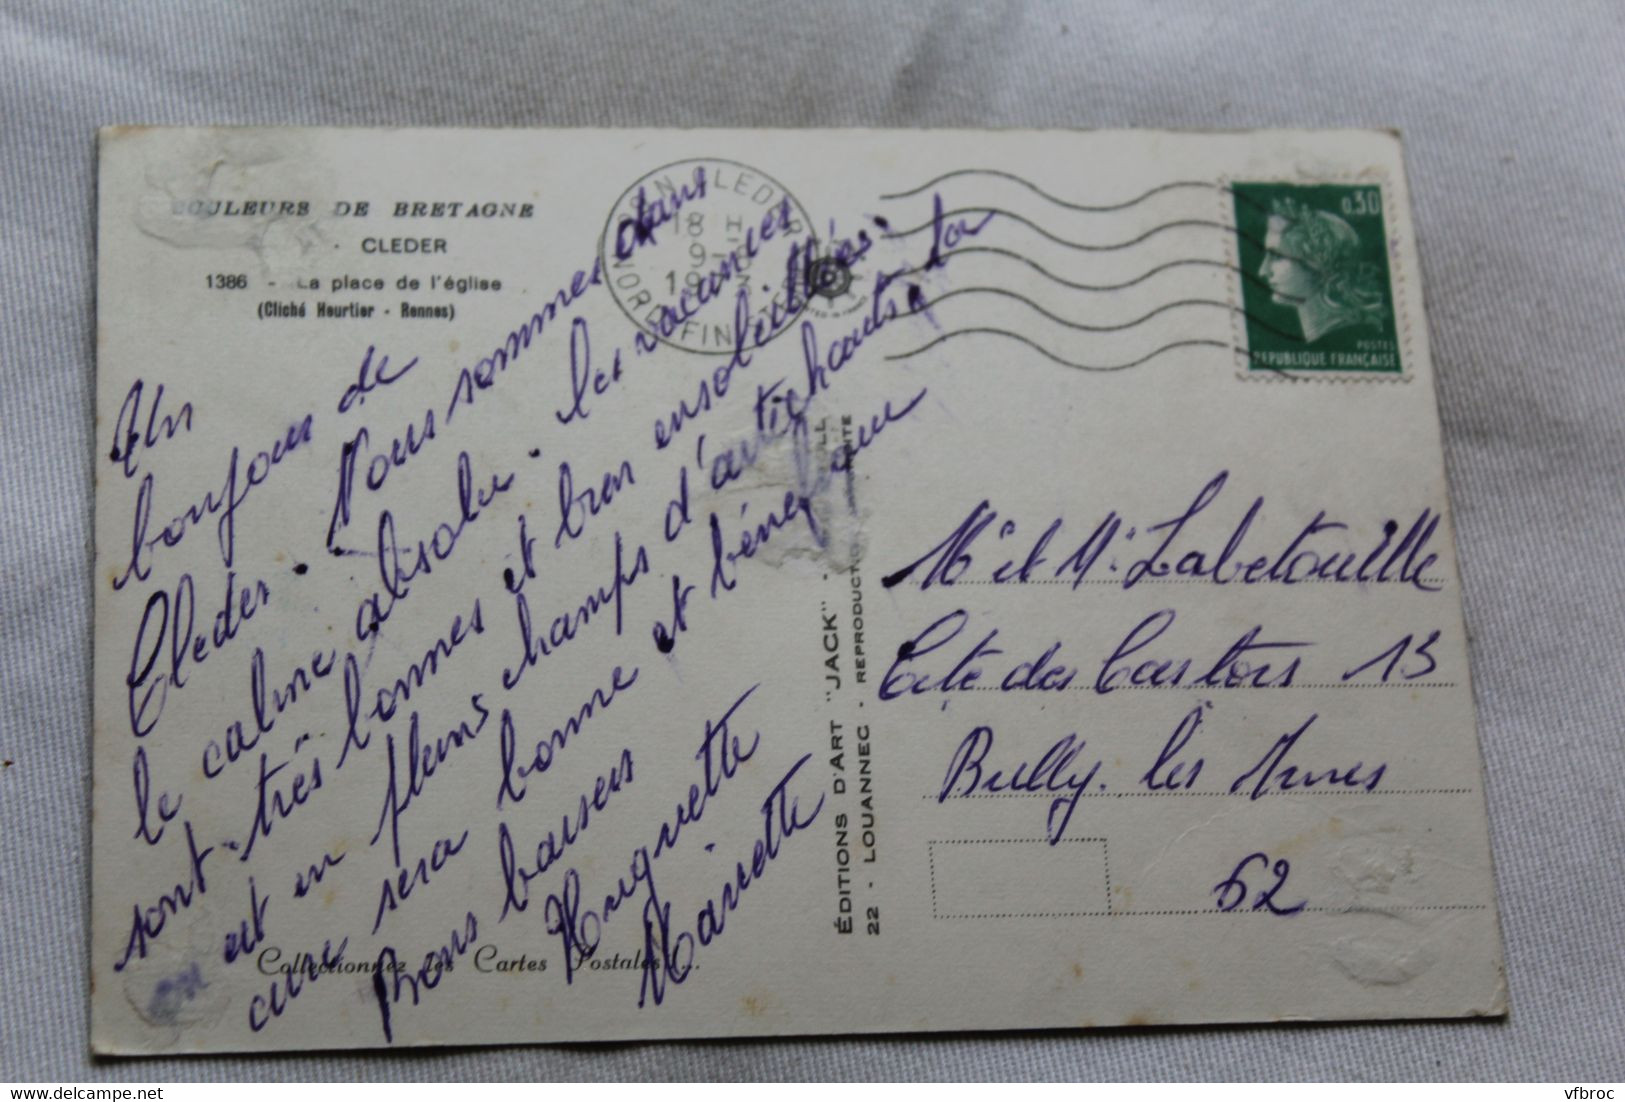 COULEURS DE BRETAGNE
CLEDER
1386 - La place de l'église
(Cliché Heurtier - Rennes)
Un
bonjour de
Cleder. Nous sommes dans
le calme absolu. les vacances
sont très bonnes et bien ensoleillées.
est en pleins champs d'artichauts la
cure sera bonne et bénéfique
Bons baisers
Huguette
Mariette
Collectionnez les Cartes Postales...
ÉDITIONS D'ART "JACK"
22 - LOUANNEC - REPRODUCTION
18 H
CLEDER
NORD FINISTERE
0,30
POSTES
REPUBLIQUE FRANÇAISE
Mr et Me Labetoulle
Cité des Castors 13
Bully. les Mines
62
vfbroc